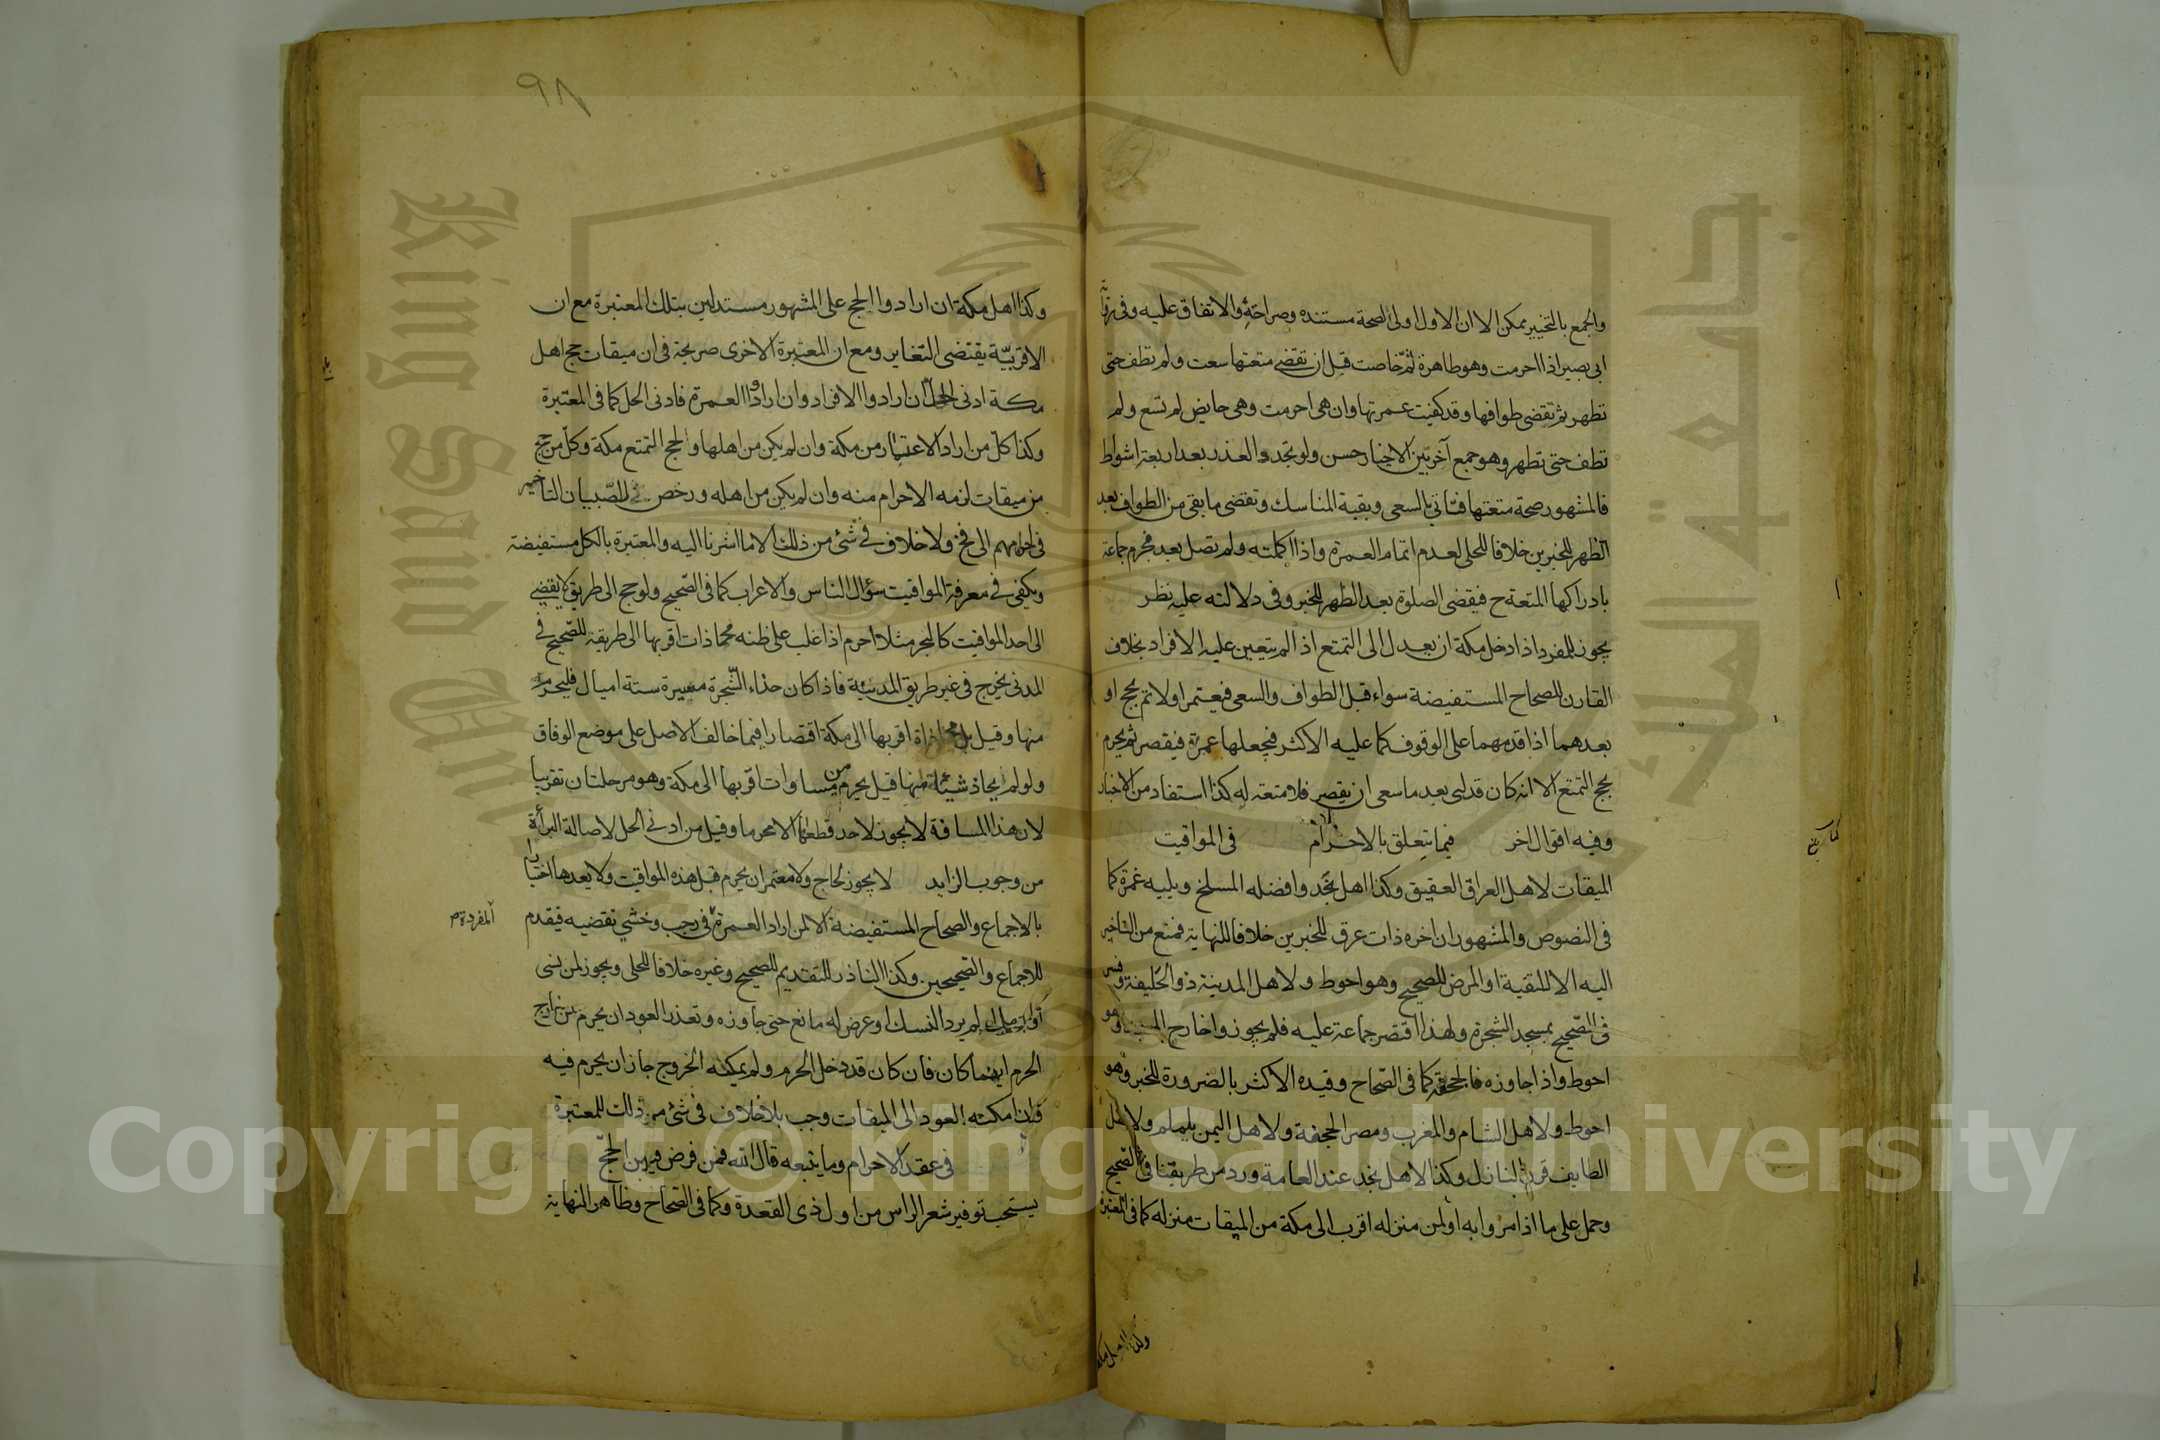 والجمع بالتخيير يمكن الا ان الاول اولى لصحة مستنده وصراحته والاتفاق عليه وفى رواية
ابى بصير اذا احرمت وهو طاهرة ثم حاضت قبل ان تقضى متعتها سعت ولم تطف حتى
تطهر ثم تقضى طوافها وقد كفيت عمرتها وان هى احرمت وهى حايض لم تسع ولم
تطف حتى تطهر وهو جمع آخر بين الاخبار حسن ولو تجدد العذر بعد اربعة اشواط
فالمشهور صحة متعتها فتاتى بالسعى وبقية المناسك وتقضى ما بقى من الطواف بعد
الطهر للخبرين خلافا للحلى لعدم اتمام العمرة واذا اكملته ولم تصل بعد فجزم جماعة
بادراكها المتعة ح فيقضى الصلوة بعد الطهر للخبر وفى دلالته عليه نظر
يجوز للمفرد اذا دخل مكة ان يعدل الى التمتع اذا لم يتعين عليه الافراد بخلاف
القارن للصحاح المستفيضة سواء قبل الطواف والسعى فيعتمر اولا ثم يحج او
بعدهما اذا قدمهما على الوقوف كما عليه الاكثر فيجعلها عمرة فيقصر ثم يحرم
بحج التمتع الا انه كان قد لبى بعد ما سعى ان يقصر فلا متعة له كذا استفاد من الاخبار
وفيه اقوال اخر فيما يتعلق بالاحرام فى المواقيت
الميقات لاهل العراق العقيق وكذا اهل نجد وافضله المسلخ ويليه غمرة كما
فى النصوص والمشهور ان اخره ذات عرق للخبرين خلافا للنهاية فمنع من التاخير
اليه الا للتقية او المرض للصحيح وهو احوط ولاهل المدينة ذو الحليفة وفسر
فى الصحيح بمسجد الشجرة ولهذا اقتصر جماعة عليه فلم يجوزوا خارج المسجد وهو
احوط واذا جاوزه فالجحفة كما فى الصحاح وقيده الاكثر بالضرورة للخبر وهو
احوط ولاهل الشام والمغرب ومصر الجحفة ولاهل اليمن يلملم ولاهل
الطايف قرن المنازل وكذا لاهل نجد عند العامة وورد من طريقنا فى الصحيح
وحمل على ما اذا مروا به او لمن منزله اقرب الى مكة من الميقات منزله كما فى المعتبرة
وكذا اهل مكة
وكذا اهل مكة ان ارادوا الحج على المشهور مستدلين بتلك المعتبرة مع ان
الاقربية يقتضى التغاير ومع ان المعتبرة الاخرى صريحة فى ان ميقات حج اهل
مكة ادنى الحل ان ارادوا الافراد وان ارادوا العمرة فادنى الحل كما فى المعتبرة
وكذا كل من اراد الاعتمار من مكة وان لم يكن من اهلها ولحج التمتع مكة وكل من حج
من ميقات لزمه الاحرام منه وان لم يكن من اهله ورخص للصبيان التاخير
فى احرامهم الى فخ ولا خلاف فى شئ من ذلك الا ما اشرنا اليه والمعتبرة بالكل مستفيضة
ويكفى فى معرفة المواقيت سؤال الناس والاعراب كما فى الصحيح ولو حج الى طريق لا يفضى
الى احد المواقيت كالبحر مثلا احرم اذا غلب على ظنه محاذات اقربها الى طريقه للصحيح فى
المدنى يخرج فى غير طريق المدينة فاذا كان حذاء الشجرة مسيرة ستة اميال فليحرم
منها وقيل بل محاذاة اقربها الى مكة اقتصارا فيما خالف الاصل على موضع الوفاق
ولو لم يحاذ شيئا منها قيل يحرم من مساوات اقربها الى مكة وهو مرحلتان تقريبا
لان هذا المسافة لا يجوز لاحد قطعها الا محرما وقيل من ادنى الحل لاصالة البرأة
من وجوب الزايد لا يجوز لحاج ولا معتمر ان يحرم قبل هذه المواقيت ولا بعدها اختيارا
بالاجماع والصحاح المستفيضة الا لمن اراد العمرة فى رجب وخشى تقضيه فيقدم
المفردة
للاجماع والصحيحين وكذا الناذر للتقديم للصحيح وغيره خلافا للحلى ويجوز لمن نسى
لم يرد النسك او عرض له مانع حتى جاوزه وتعذر العود ان يحرم من خارج
الحرم اينما كان فان كان قد دخل الحرم ولم يمكنه الخروج جاز ان يحرم فيه
فان امكنه العود الى الميقات وجب بلا خلاف فى شئ من ذلك للمعتبرة
فى عقد الاحرام وما يتبعه قال الله فمن فرض فيهن الحج
يستحب توفير شعر الراس من اول ذى القعدة وكما فى الصحاح وظاهر النهاية
Copyright © King Saud University
King Saud University
جامعة الملك